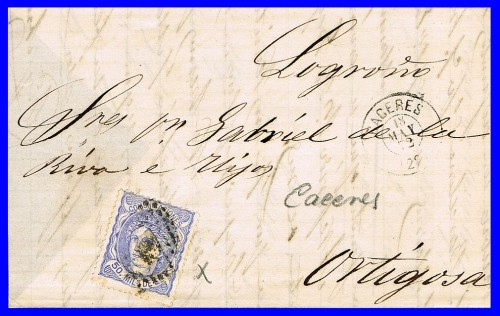 Logroño
Sres Dn. Gabriel de la
Riva e Hijos
CACERES
MAY
Caceres
50 MILS DE
x
Ortigosa